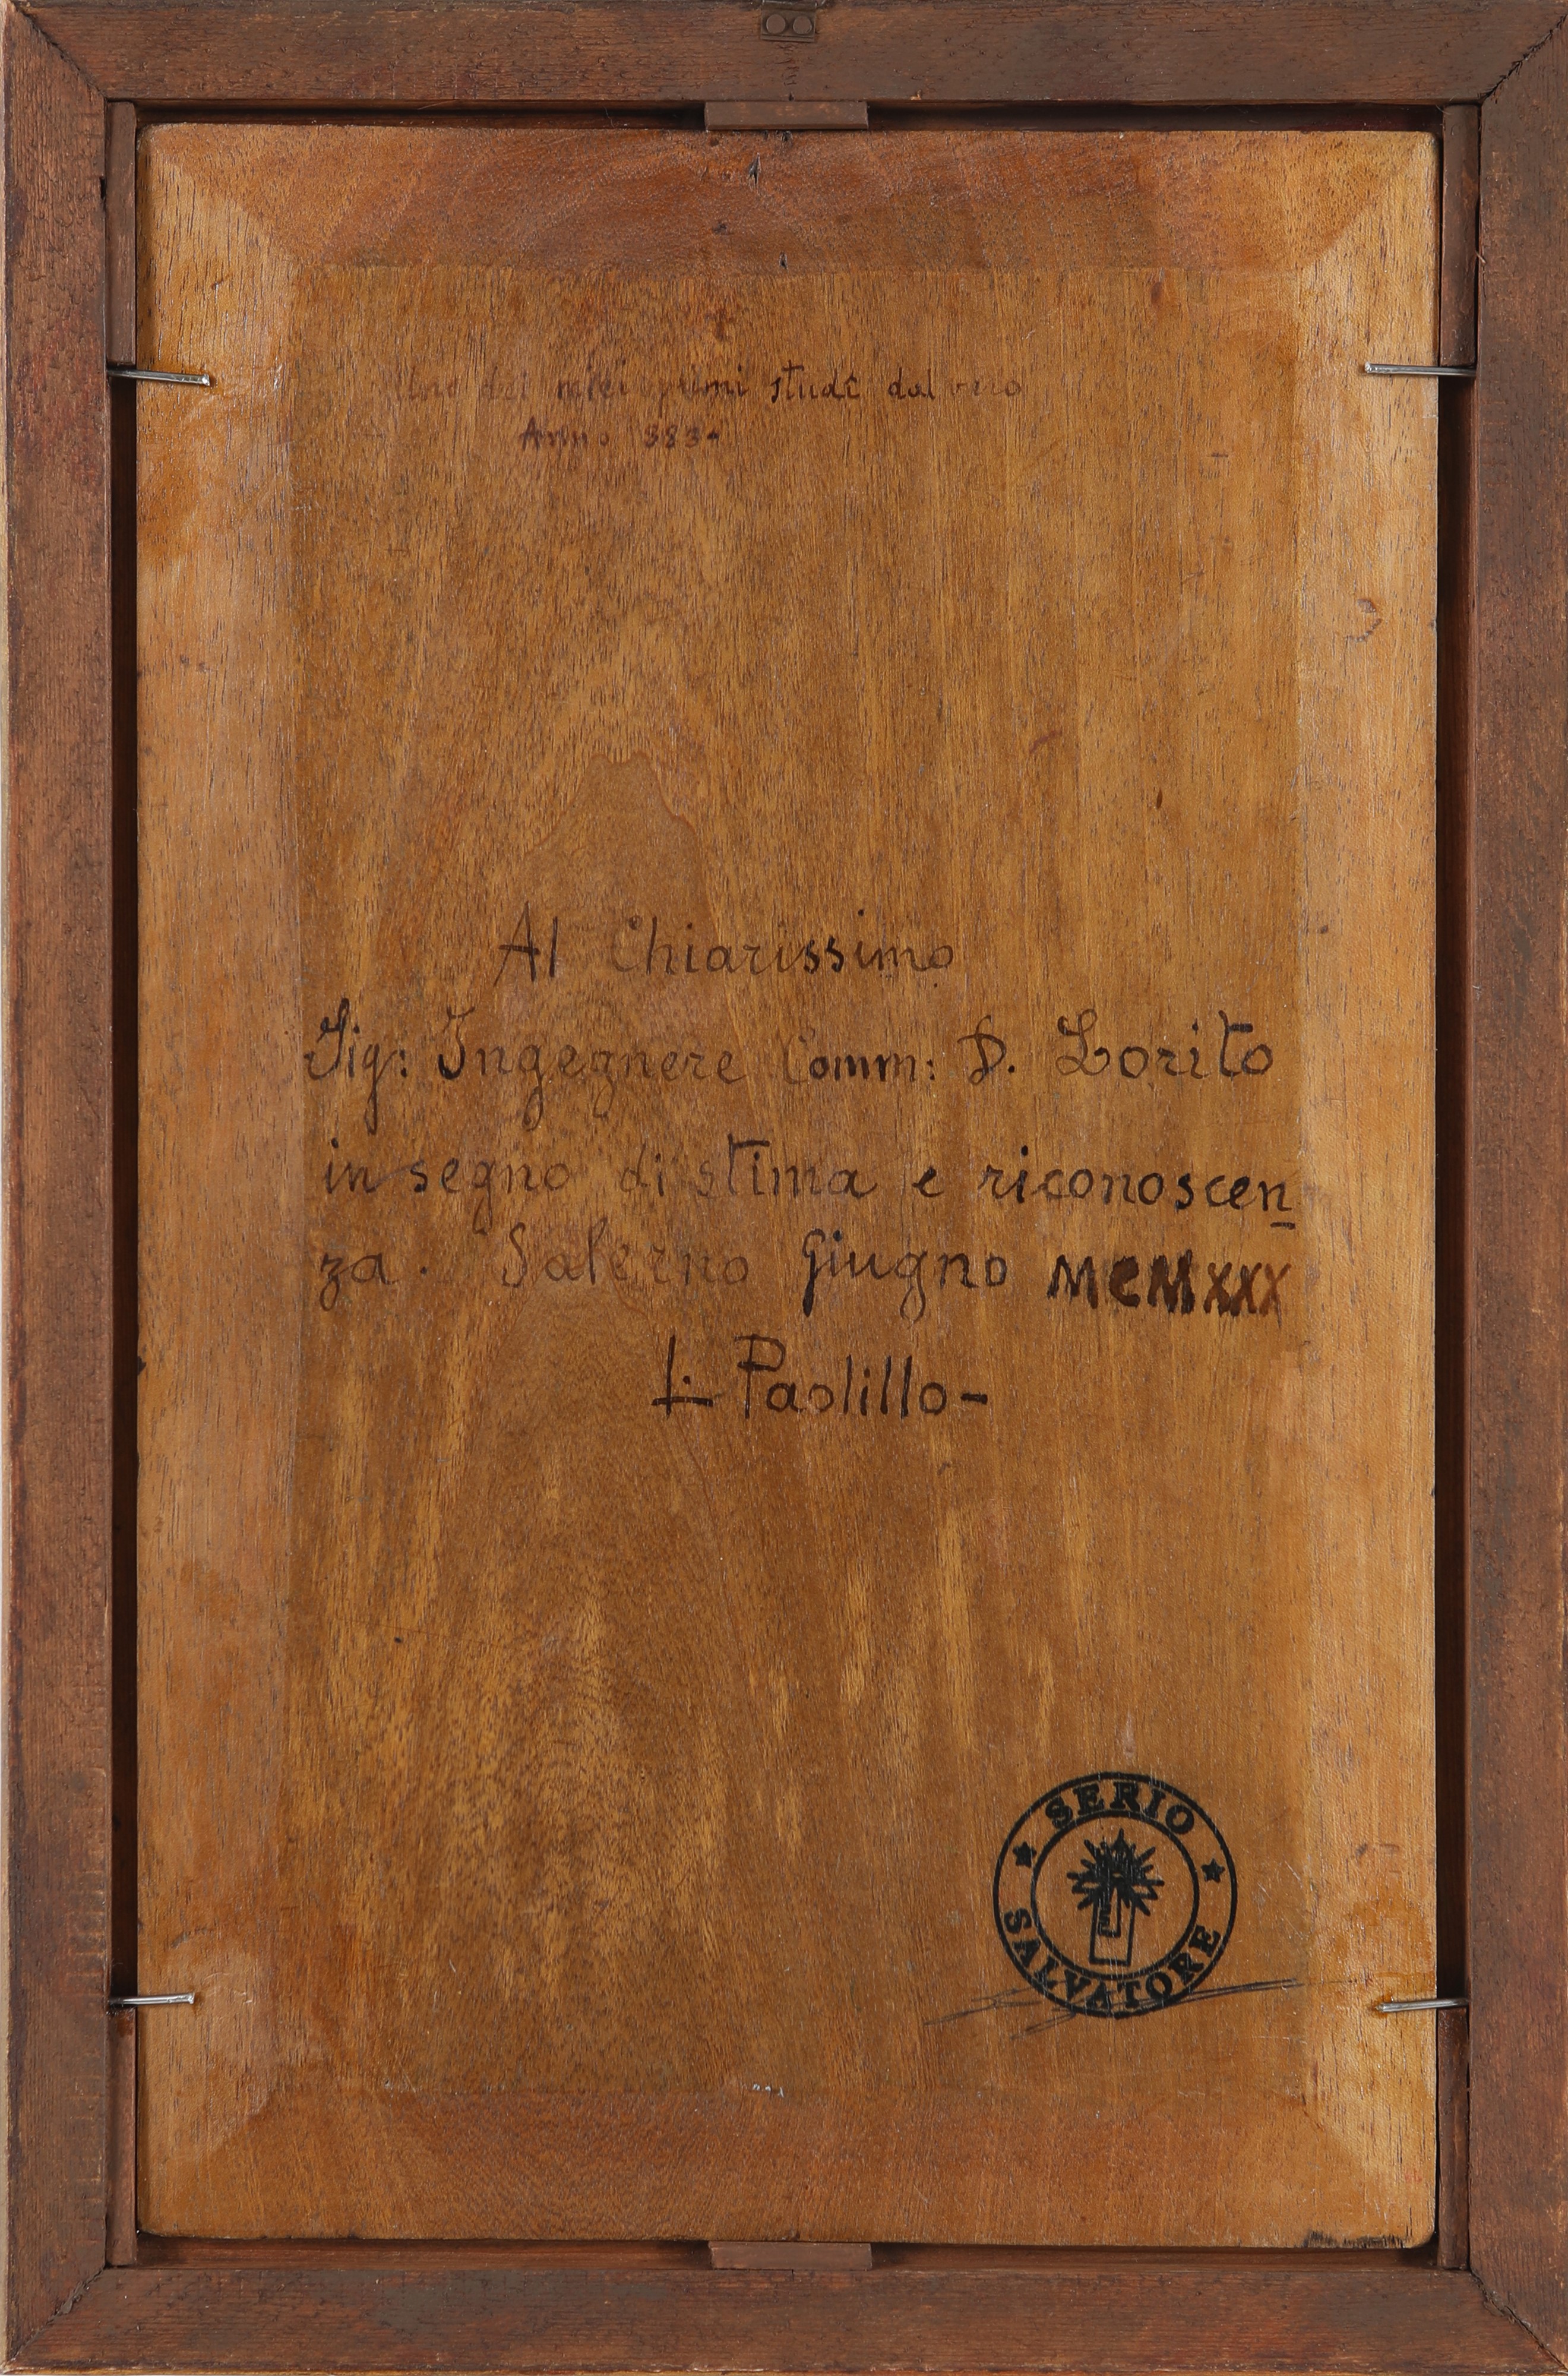 Uno dei miei primi studi dal vero
Anno 883-
Al Chiarissimo
Sig: Ingegnere Comm: D. Lorito
in segno di stima e riconoscen
za. Salerno Giugno MCMXXX
L. Paolillo-
SERIO
SALVATORE